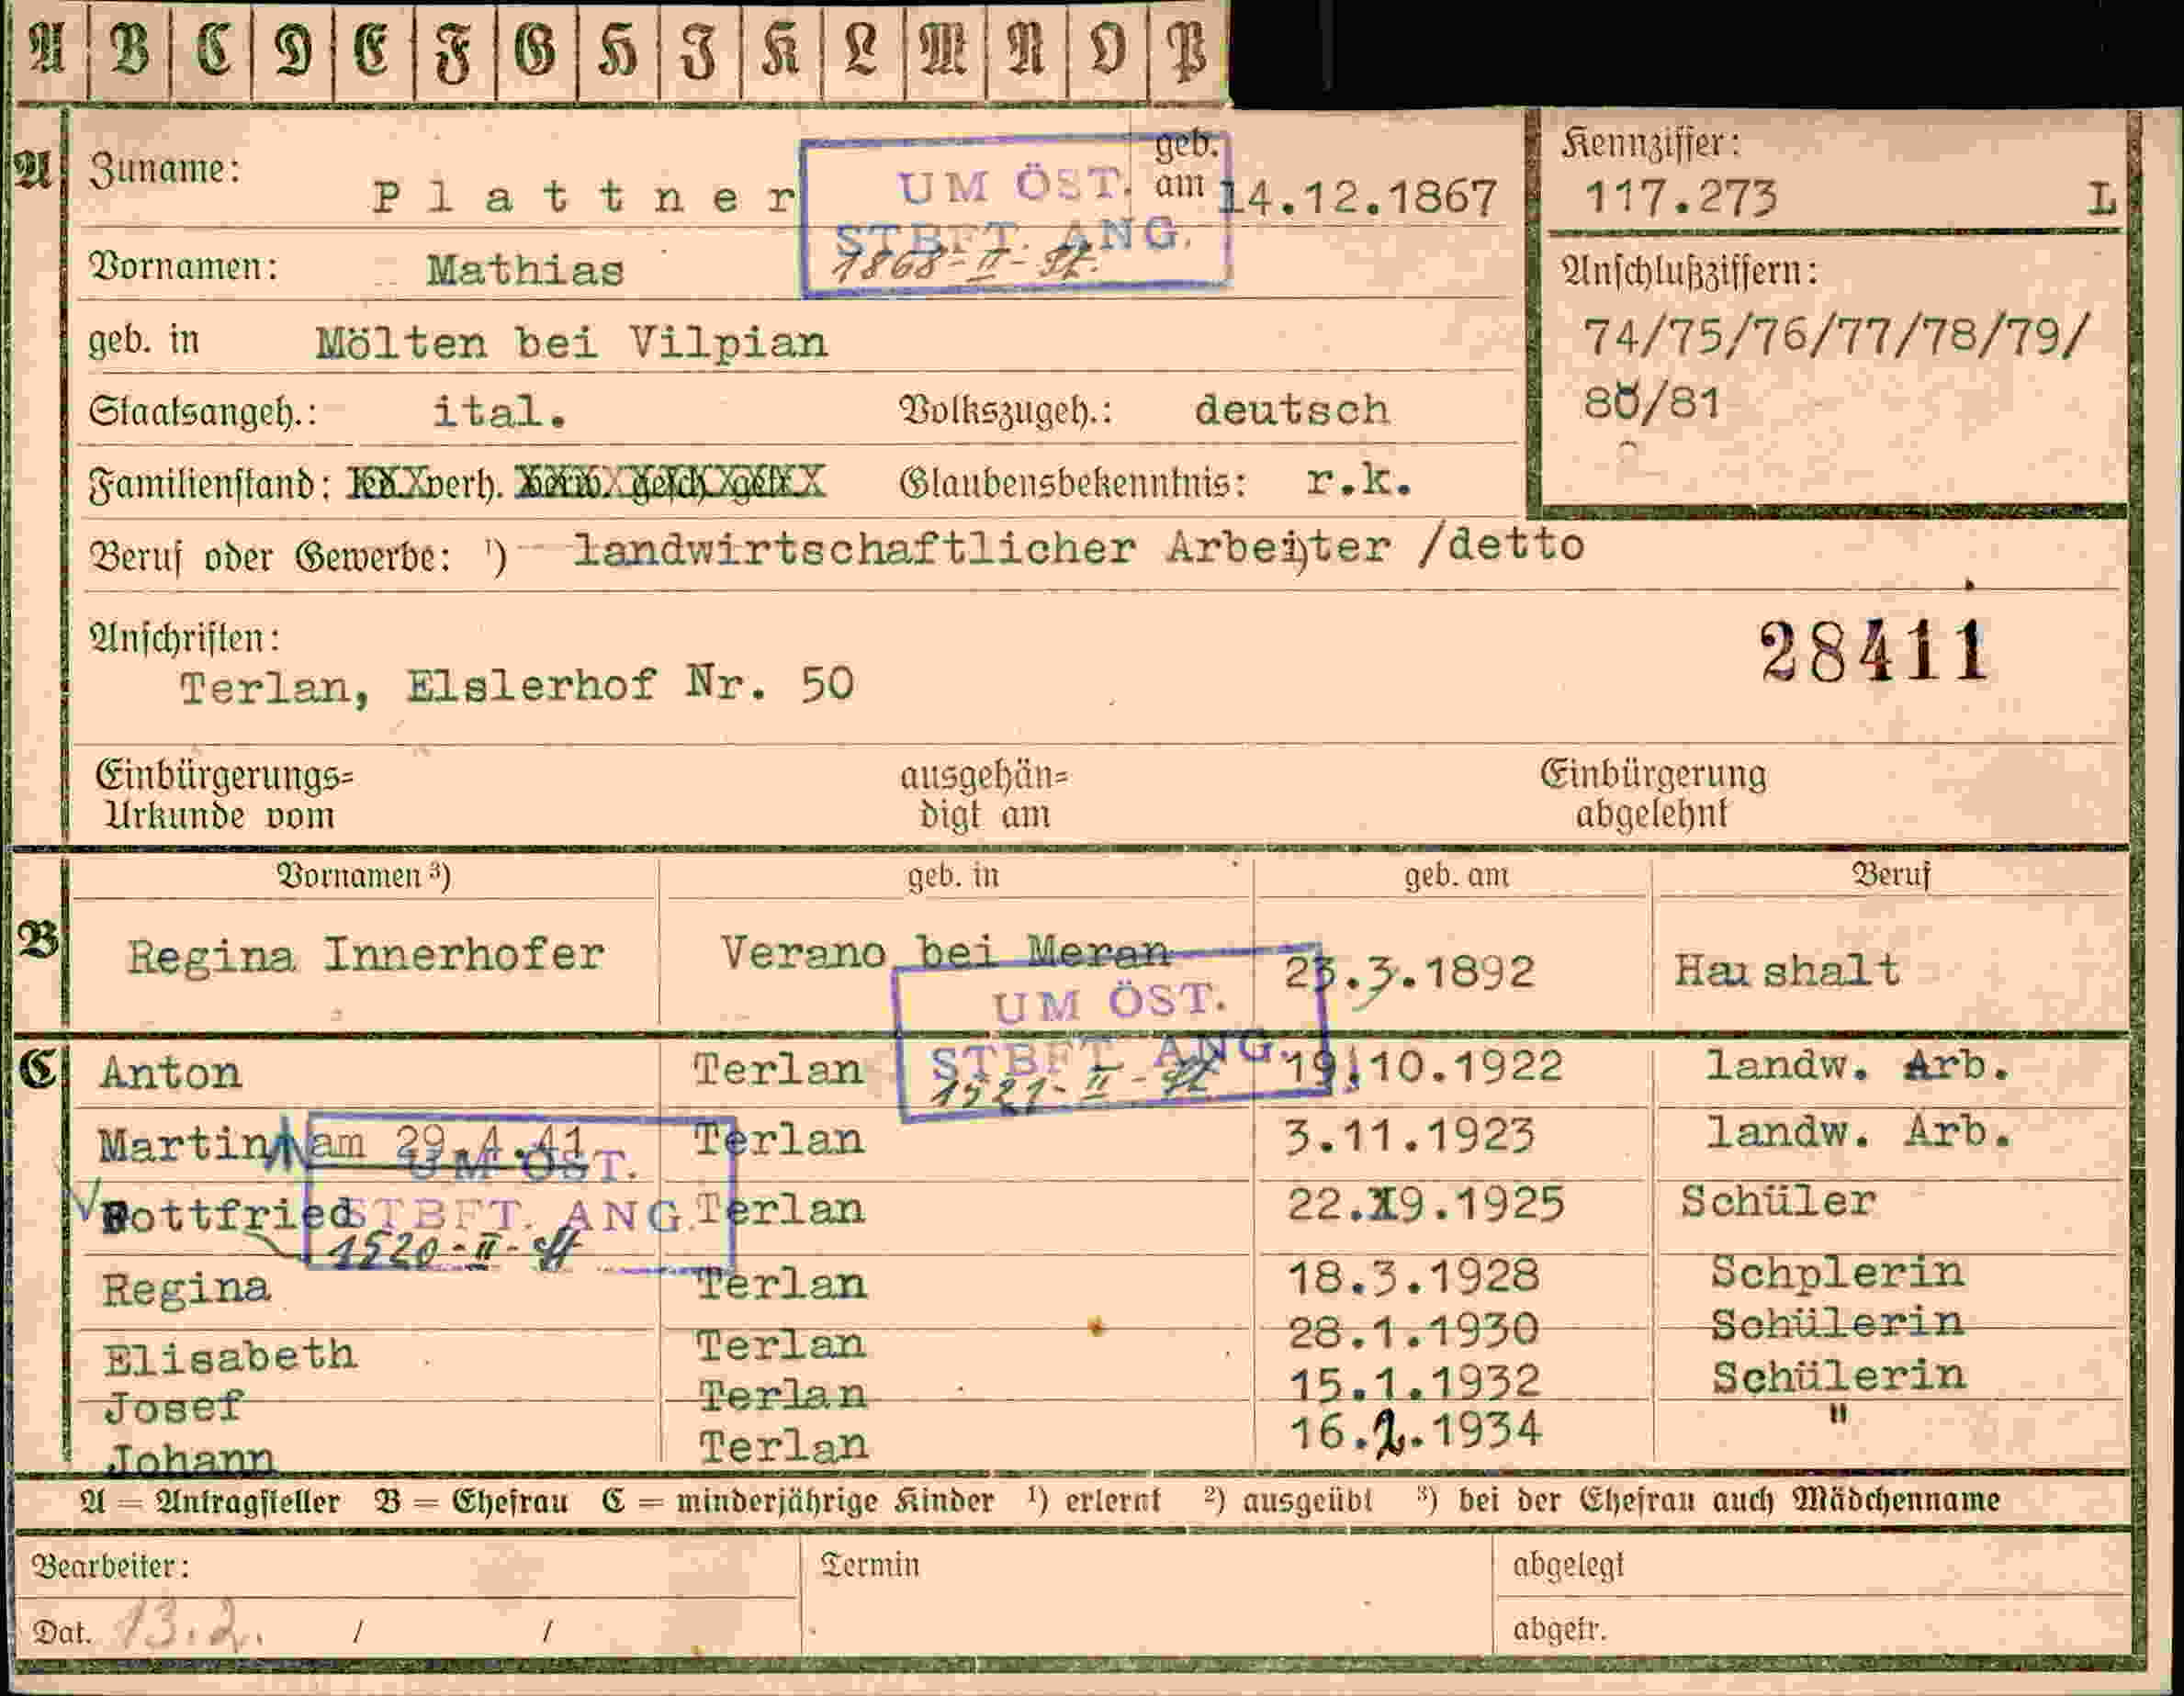 A B C D E F G H I K L M N O P
A
Zuname: Plattner
geb. am 14.12.1867
UM ÖST.
STBFT. ANG.
1868-II-
Kennziffer:
117.273 L
Vornamen: Mathias
Anschlußziffern:
74/75/76/77/78/79/
80/81
geb. in Mölten bei Vilpian
Staatsangeh.: ital. Volkszugeh.: deutsch
Familienstand: verh. Glaubensbekenntnis: r.k.
Beruf oder Gewerbe: ¹) landwirtschaftlicher Arbeiter /detto
Anschriften:
28411
Terlan, Elslerhof Nr. 50
Einbürgerungs= ausgehän= Einbürgerung
Urkunde vom digt am abgelehnt
Vornamen ³) geb. in geb. am Beruf
B
Regina Innerhofer Verano bei Meran 23.3.1892 Haushalt
UM ÖST.
STBFT. ANG.
1521-II-
C
Anton Terlan 19.10.1922 landw. Arb.
Martin am 29.4.41 Terlan 3.11.1923 landw. Arb.
UM ÖST.
STBFT. ANG.
1520-II-
Gottfried Terlan 22.9.1925 Schüler
Regina Terlan 18.3.1928 Schplerin
Elisabeth Terlan 28.1.1930 Schülerin
Josef Terlan 15.1.1932 Schülerin
Johann Terlan 16.2.1934 "
A = Antragsteller B = Ehefrau C = minderjährige Kinder ¹) erlernt ²) ausgeübt ³) bei der Ehefrau auch Mädchenname
Bearbeiter: Termin abgelegt
Dat. 13.2. / / abgetr.